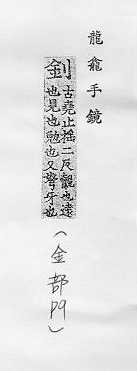 龍龕手鏡
釗古堯止摇二反覩也遠
也見也勉也又弩牙也
(金部 p9)